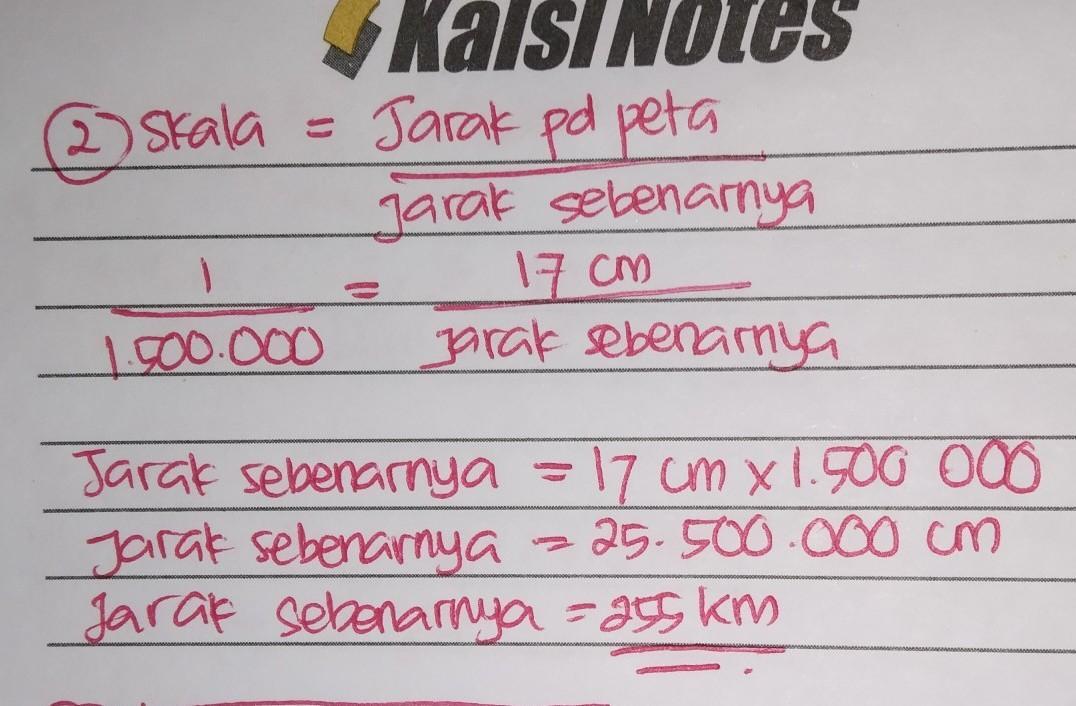 Kalsi Notes
2 Skala = Jarak pd peta
jarak sebenarnya
1 = 17 cm
1.500.000 jarak sebenarnya
Jarak sebenarnya = 17 cm x 1.500 000
jarak sebenarnya = 25.500.000 cm
Jarak sebenarnya = 255 km